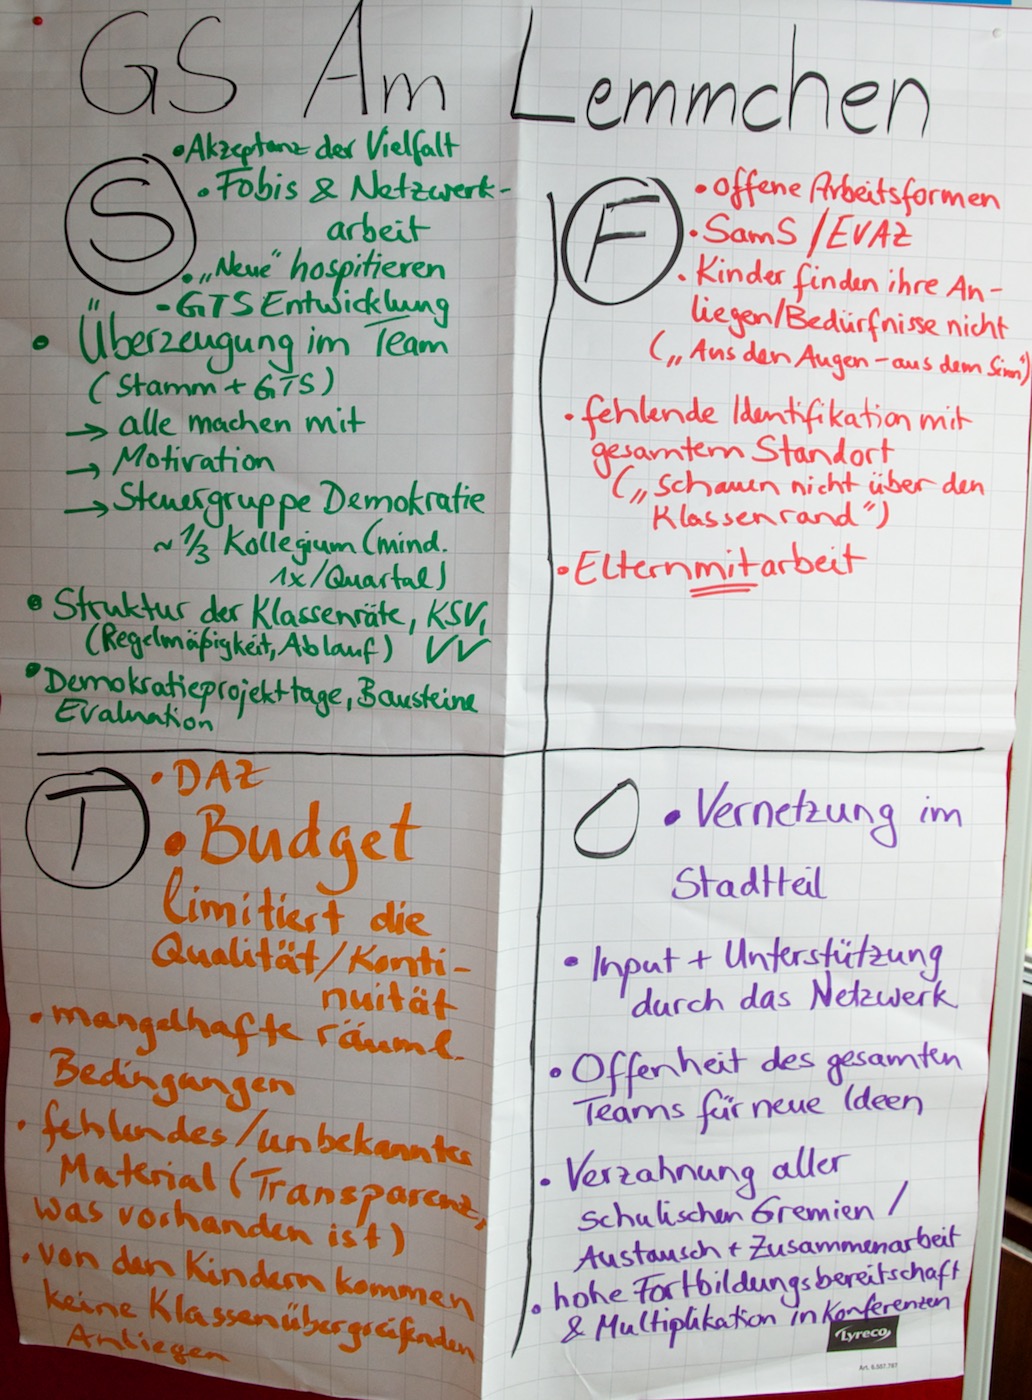 GS Am Lemmchen
S
• Akzeptanz der Vielfalt
• Fobis & Netzwerk-
arbeit
• „Neue" hospitieren
" - GTS Entwicklung
• Überzeugung im Team
(Stamm + GTS)
→ alle machen mit
→ Motivation
→ Steuergruppe Demokratie
~ 1/3 Kollegium (mind.
1x/Quartal)
• Struktur der Klassenräte, KSV,
(Regelmäßigkeit, Ablauf) VV
• Demokratieprojekttage, Bausteine
Evaluation
F
• offene Arbeitsformen
• SamS / EVAZ
• Kinder finden ihre An-
liegen/Bedürfnisse nicht
(„Aus den Augen - aus dem Sinn")
• fehlende Identifikation mit
gesamtem Standort
(„schauen nicht über den
Klassenrand")
• Elternmitarbeit
T
• DAZ
• Budget
limitiert die
Qualität/Konti-
nuität
• mangelhafte räuml.
Bedingungen
• fehlendes/unbekanntes
Material (Transparenz,
was vorhanden ist)
• von den Kindern kommen
keine Klassenübergreifenden
Anliegen
O
• Vernetzung im
Stadtteil
• Input + Unterstützung
durch das Netzwerk
• Offenheit des gesamten
Teams für neue Ideen
• Verzahnung aller
schulischen Gremien /
Austausch + Zusammenarbeit
• hohe Fortbildungsbereitschaft
& Multiplikation in Konferenzen
Lyreco
Art. 5.557.767